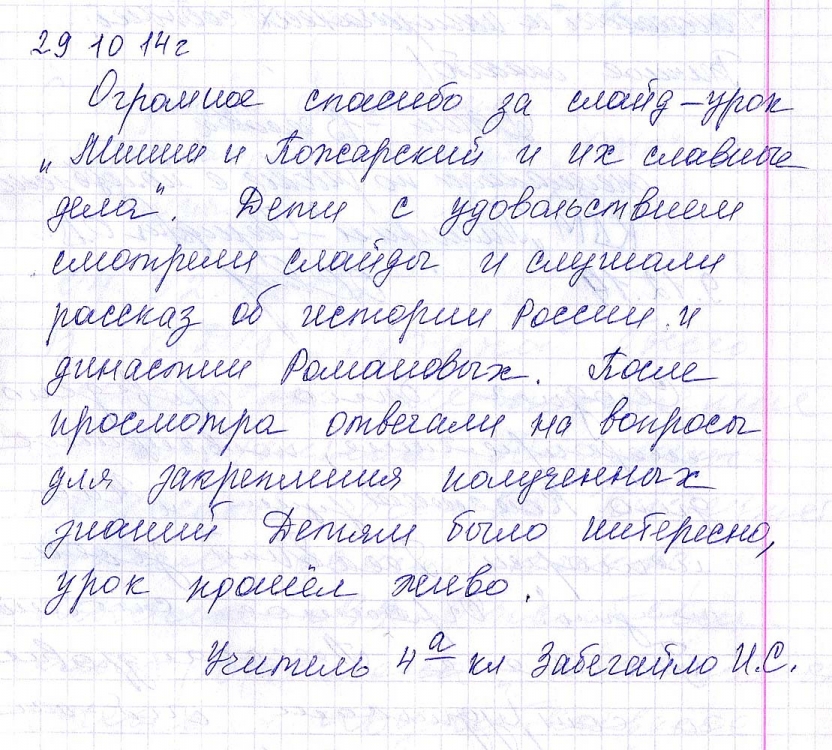 29 10 14 г
Огромное спасибо за слайд-урок
„Минин и Пожарский и их славные
дела“. Дети с удовольствием
смотрели слайды и слушали
рассказ об истории России и
династии Романовых. После
просмотра отвечали на вопросы
для закрепления полученных
знаний Детям было интересно,
урок прошёл живо.
Учитель 4 а кл Забегайло И.С.